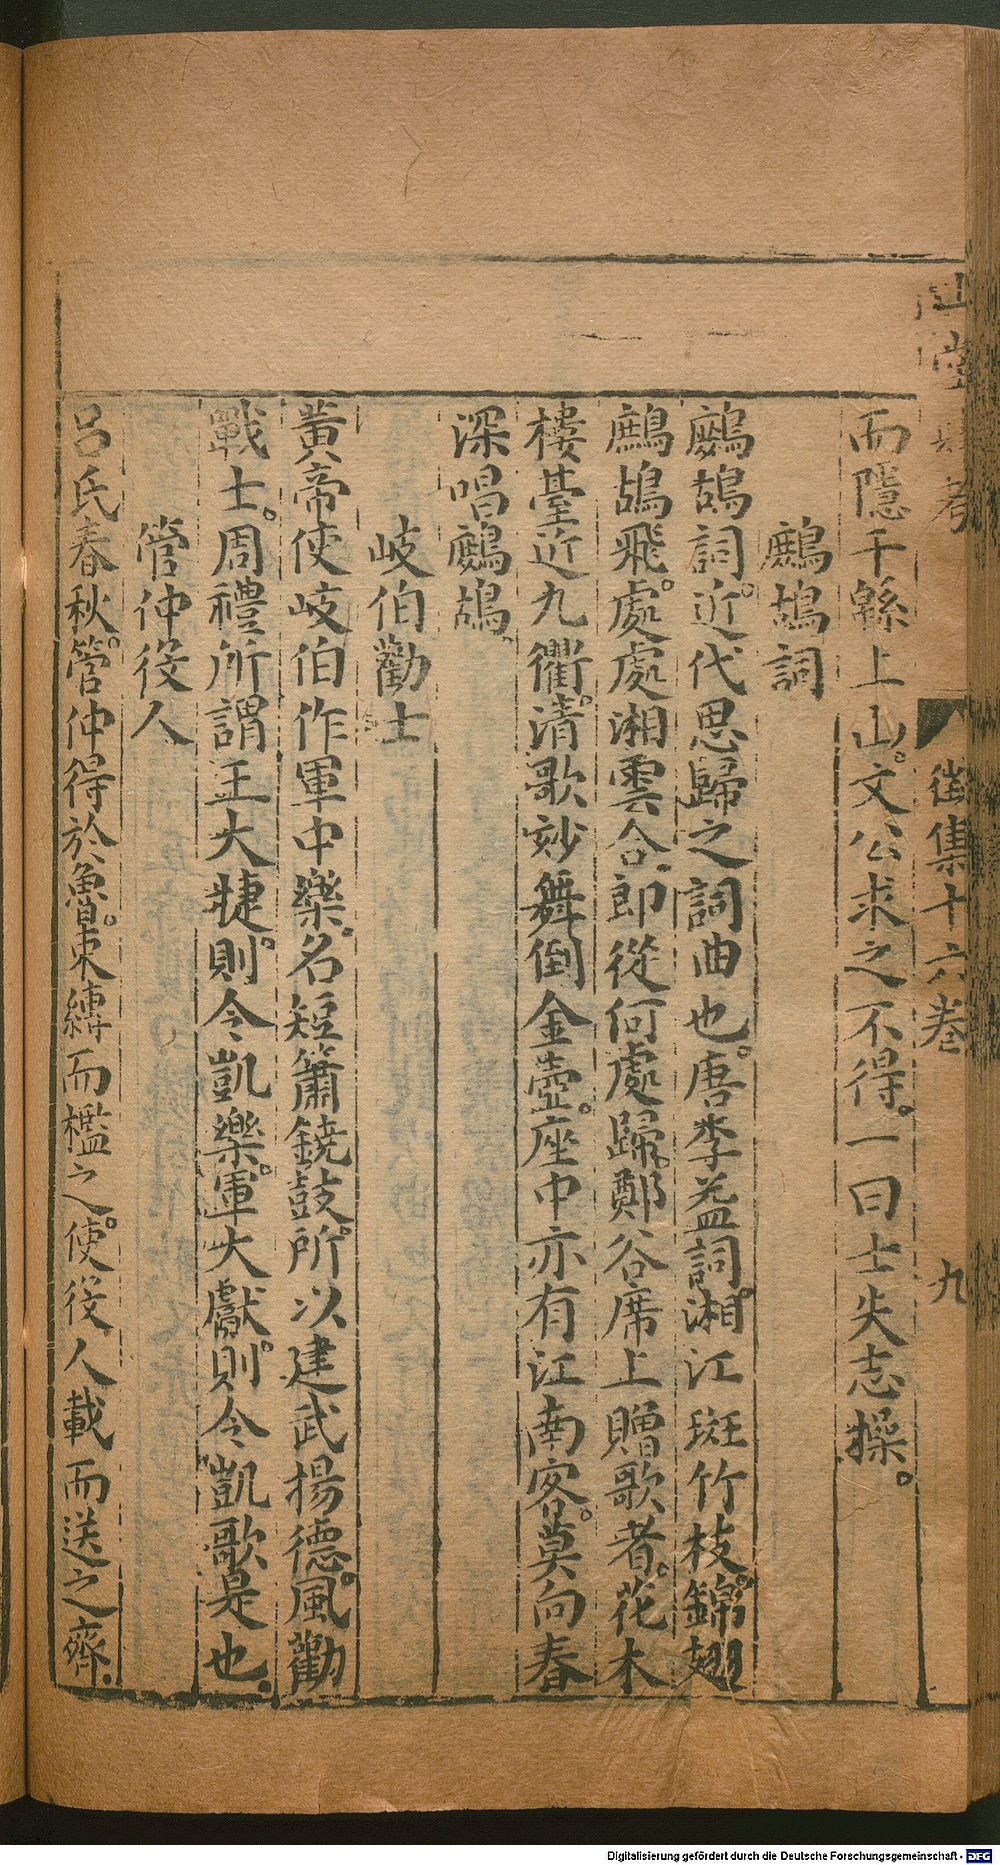 山堂肆考 徵集十六卷 九
而隱于緜上山。文公求之不得。一曰士失志操。
鷓鴣詞
鷓鴣詞。近代思歸之詞曲也。唐李益詞。湘江斑竹枝。錦翅
鷓鴣飛。處處湘雲合。郎從何處歸。鄭谷席上贈歌者。花木
樓臺近九衢。清歌妙舞倒金壺。座中亦有江南客。莫向春
深唱鷓鴣。
岐伯勸士
黃帝使岐伯作軍中樂。名短簫鐃鼓。所以建武揚德。風勸
戰士。周禮所謂王大㨗。則令凱樂。軍大獻。則令凱歌是也。
管仲役人
呂氏春秋。管仲得於魯。束縛而檻之。使役人載而送之齊。
Digitalisierung gefördert durch die Deutsche Forschungsgemeinschaft - DFG